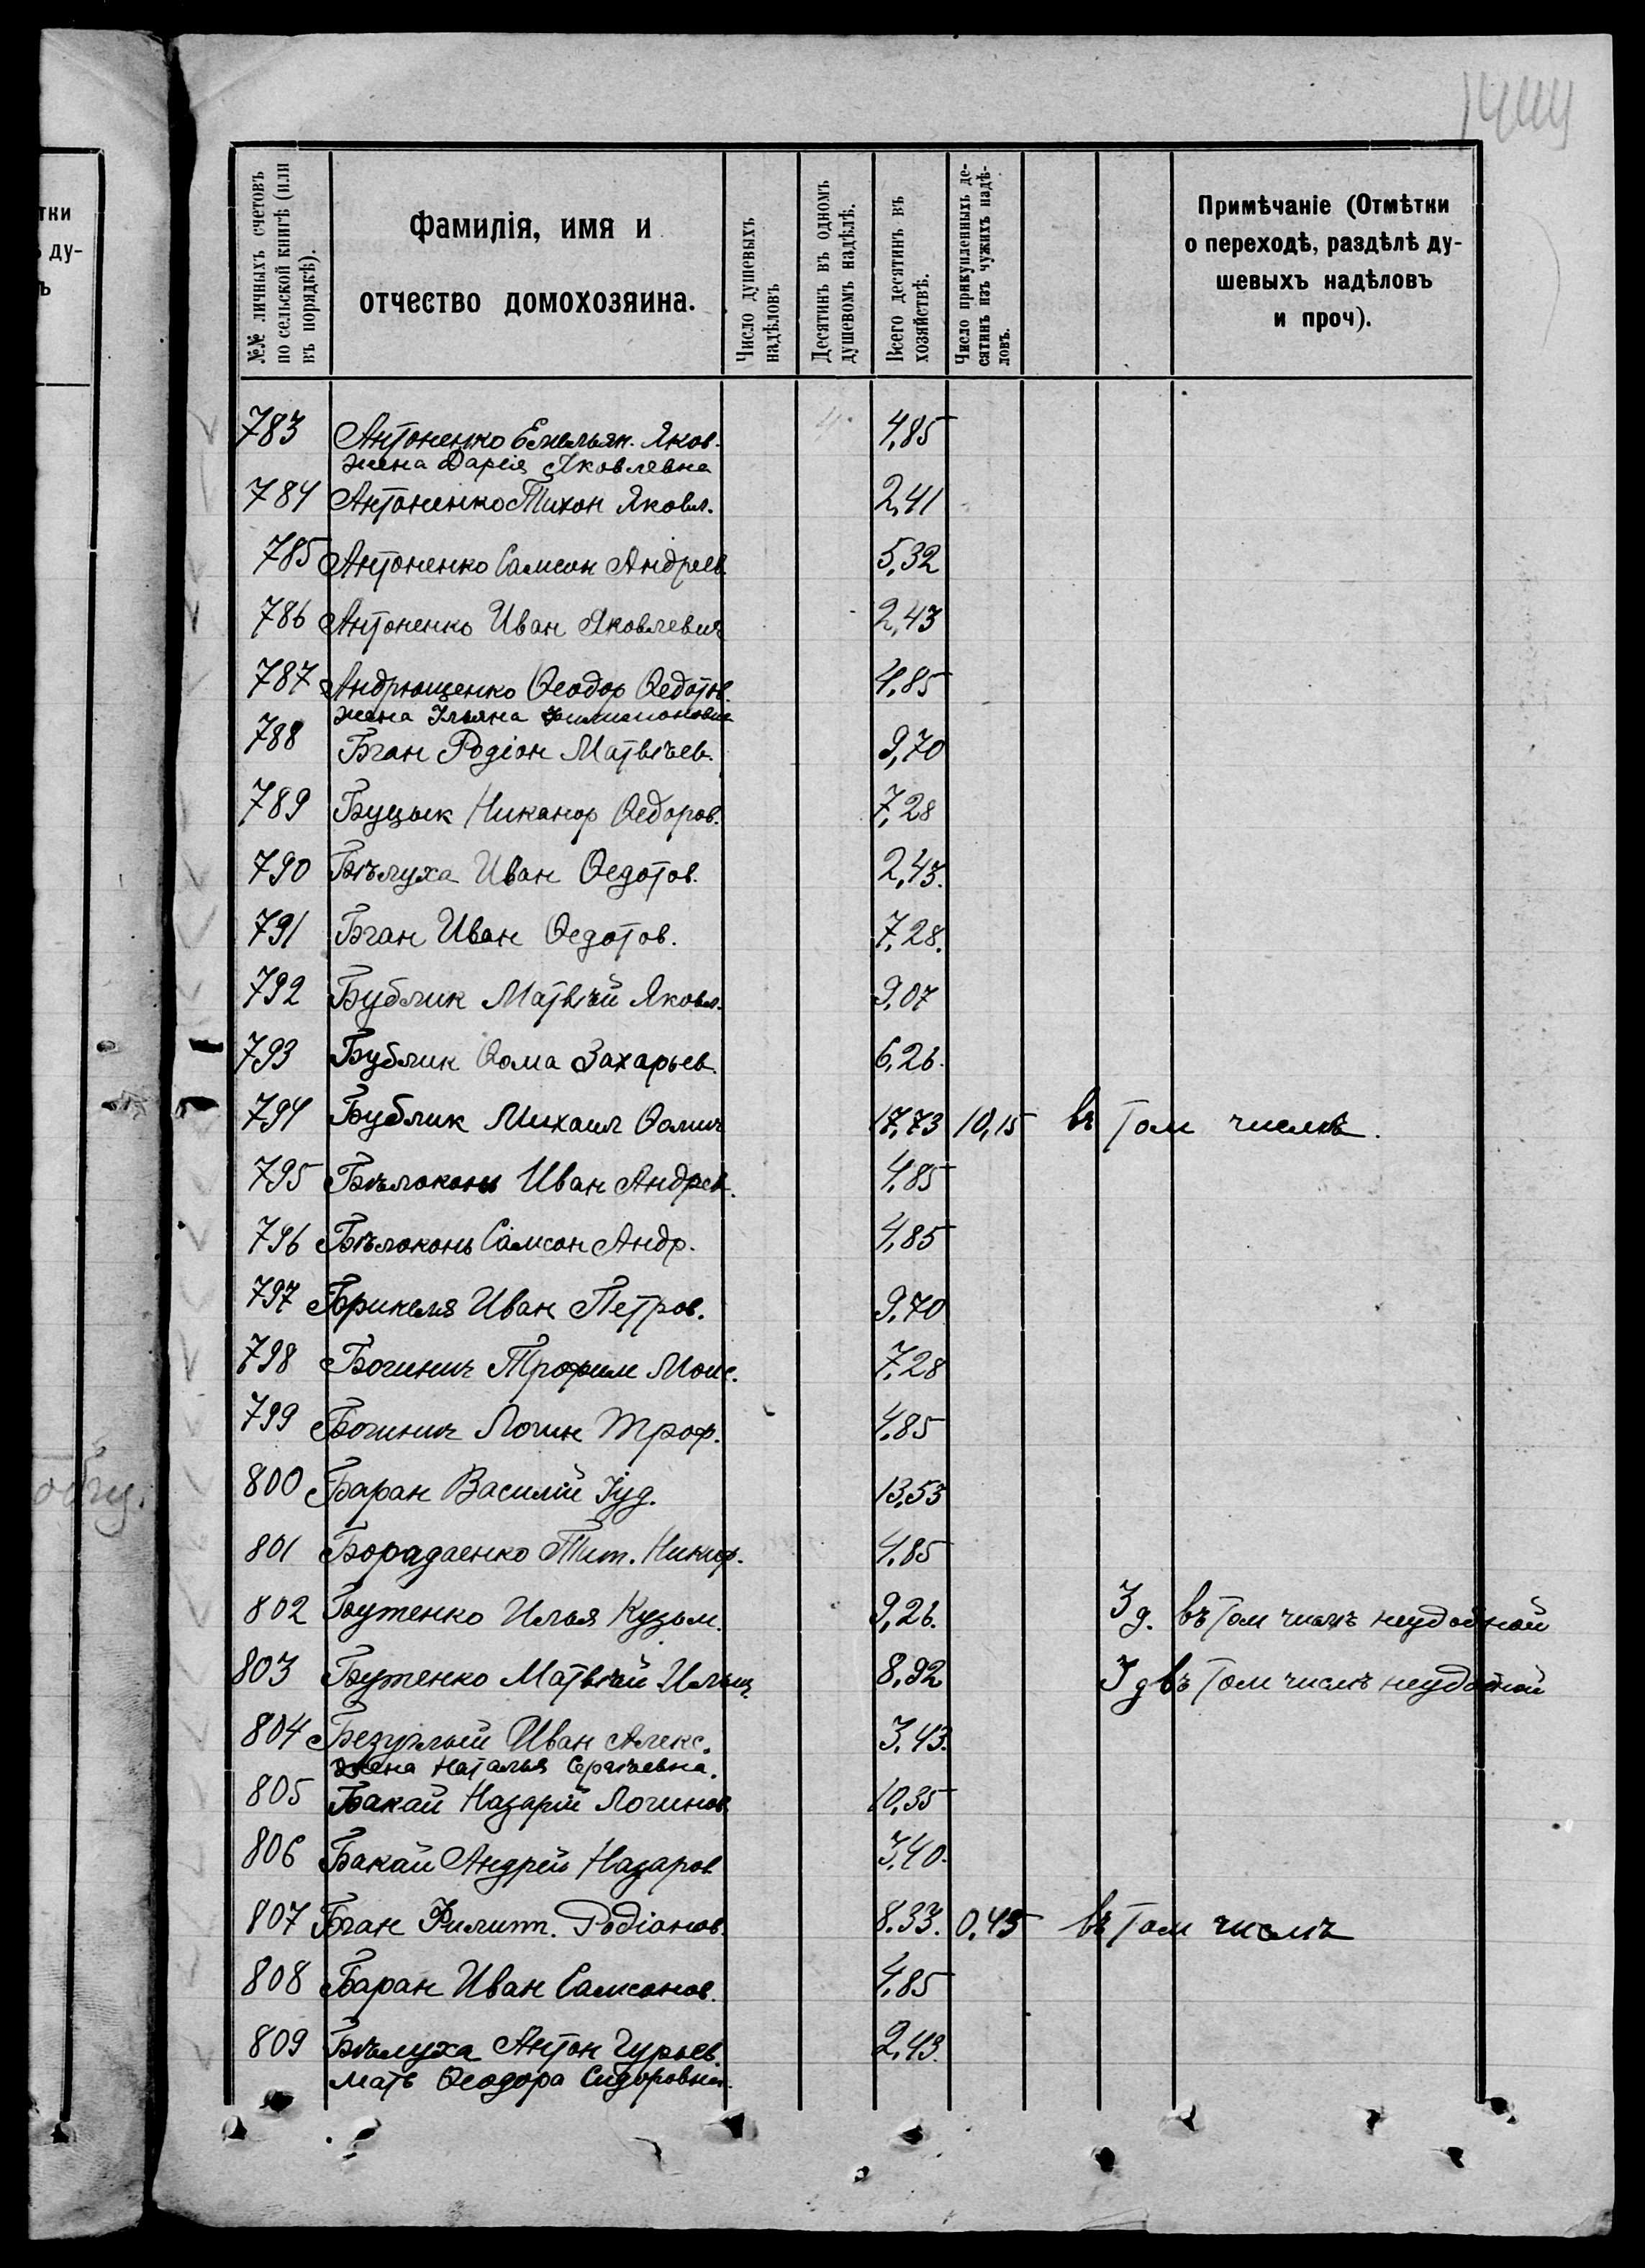 1444
тки
ду-
ъ
№№ личныхъ счетовъ
по сельской книгѣ (или
въ порядкѣ).
Фамилія, имя и
отчество домохозяина.
Число душевыхъ
надѣловъ
Десятинъ въ одномъ
душевомъ надѣлѣ.
Всего десятинъ въ
хозяйствѣ.
Число прикупленныхъ де-
сятинъ изъ чужихъ надѣ-
ловъ.
Примѣчаніе (Отмѣтки
о переходѣ, раздѣлѣ ду-
шевыхъ надѣловъ
и проч).
783 Антоненко Емельян. Яков. 4,85
жена Дарія Яковлевна
784 Антоненко Тихон Яковл. 2,41
785 Антоненко Самсон Андреев. 5,32
786 Антоненко Иван Яковлевич 2,43
787 Андрющенко Ѳеодор Ѳедотов. 4,85
жена Ульяна Филимоновна
788 Бган Родіон Матвѣев. 9,70
789 Буцык Никанор Ѳедоров. 7,28
790 Бѣлуха Иван Ѳедотов. 2,43.
791 Бган Иван Ѳедотов. 7,28.
792 Бублик Матвѣй Яковл. 9,07
793 Бублик Ѳома Захарьев. 6,26.
794 Бублик Михаил Ѳомич 17,73 10,15 въ том числѣ.
795 Бѣлоконь Иван Андрев. 4,85
796 Бѣлоконь Самсон Андр. 4,85
797 Брикеля Иван Петров. 9,70
798 Богинич Трофим Моис. 7,28
799 Богинич Логин Троф. 4,85
800 Баран Василій Іуд. 13,53
801 Борадаенко Тит. Никиф. 4,85
802 Бутенко Илья Кузьм. 9,26. 3 д. въ том числѣ неудобной
803 Бутенко Матвѣй Ильич 8,92 3 д въ том числѣ неудобной
804 Безуглый Иван Алекс. 3,43.
жена Наталья Сергѣевна.
805 Бакай Назарій Логинов. 10,35
806 Бакай Андрей Назаров 3,40.
807 Бган Филипп. Родіонов. 8,33. 0,45 въ том числѣ
808 Баран Иван Самсонов. 4,85
809 Бѣлуха Антон Гурьев. 2,43.
мать Ѳеодора Сидоровна.